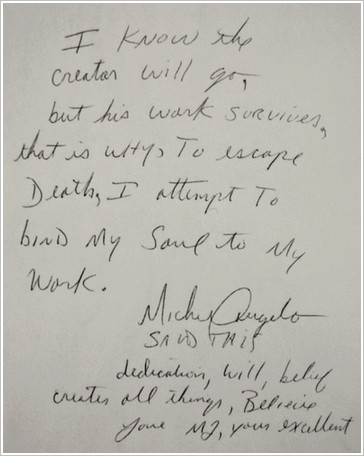 I KNOW the
creator will go,
but his work SURVIVES,
that is why, To escape
Death, I attempt To
bind My Soul to My
Work.
Michel Angelo
SAID THIS
dedication, will, belief
creates all things, Believe
your MJ, your excellent